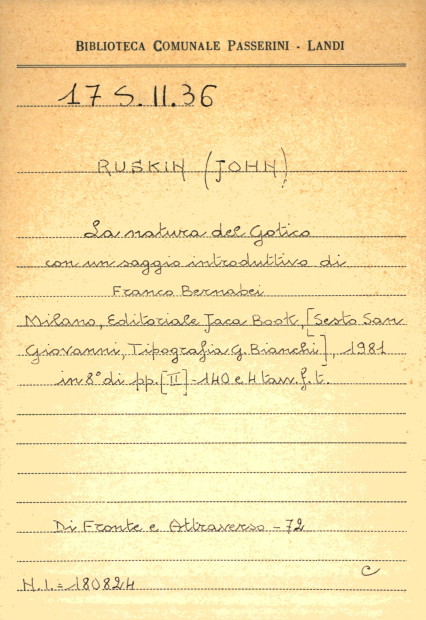 BIBLIOTECA COMUNALE PASSERINI - LANDI
17 S.II.36
RUSKIN (JOHN)
La natura del Gotico
con un saggio introduttivo di
Franco Bernabei
Milano, Editoriale Jaca Book, [Sesto San
Giovanni, Tipografia G. Bianchi], 1981
in 8° di pp. [II]-140 e 4 tavv. f. t.
Di Fronte e Attraverso - 72
C
N.I. = 180824